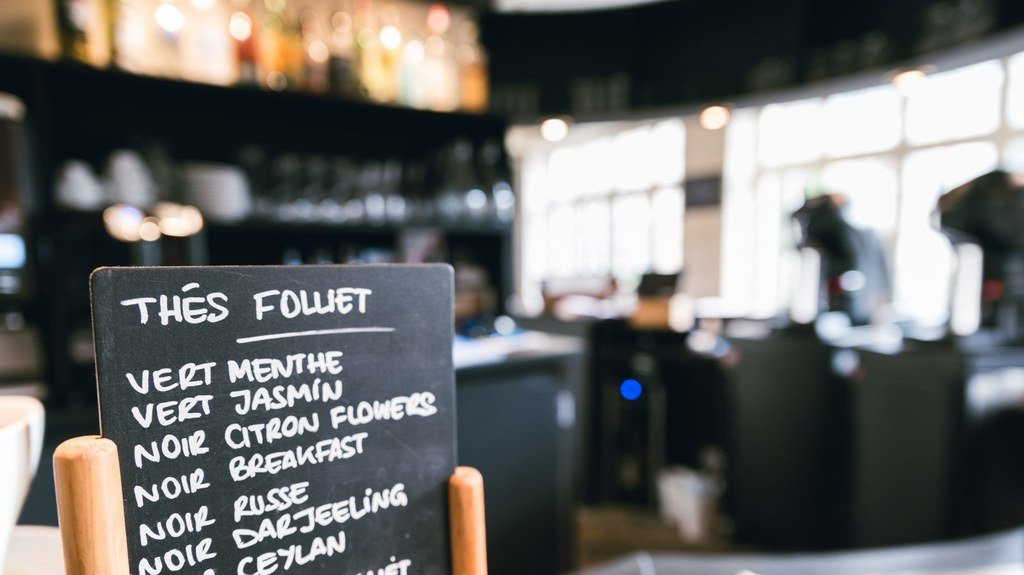 THÉS FOLLIET
VERT MENTHE
VERT JASMIN
NOIR CITRON FLOWERS
NOIR BREAKFAST
NOIR RUSSE
NOIR DARJEELING
CEYLAN